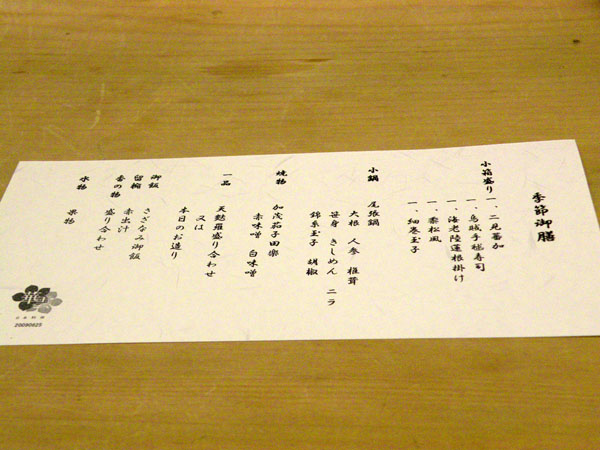 季節御膳
小箱盛り 一、二見蕃加
一、烏賊手毬寿司
一、海老陸蓮根掛け
一、黍松風
一、細巻玉子
小鍋 尾張鍋
大根 人参 椎茸
笹身 きしめん ニラ
錦糸玉子 胡椒
焼物 加茂茄子田楽
赤味噌 白味噌
一品 天麩羅盛り合わせ
又は
本日のお造り
御飯 きざなみ御飯
留椀 赤出汁
香の物 盛り合わせ
水物 果物
20090625